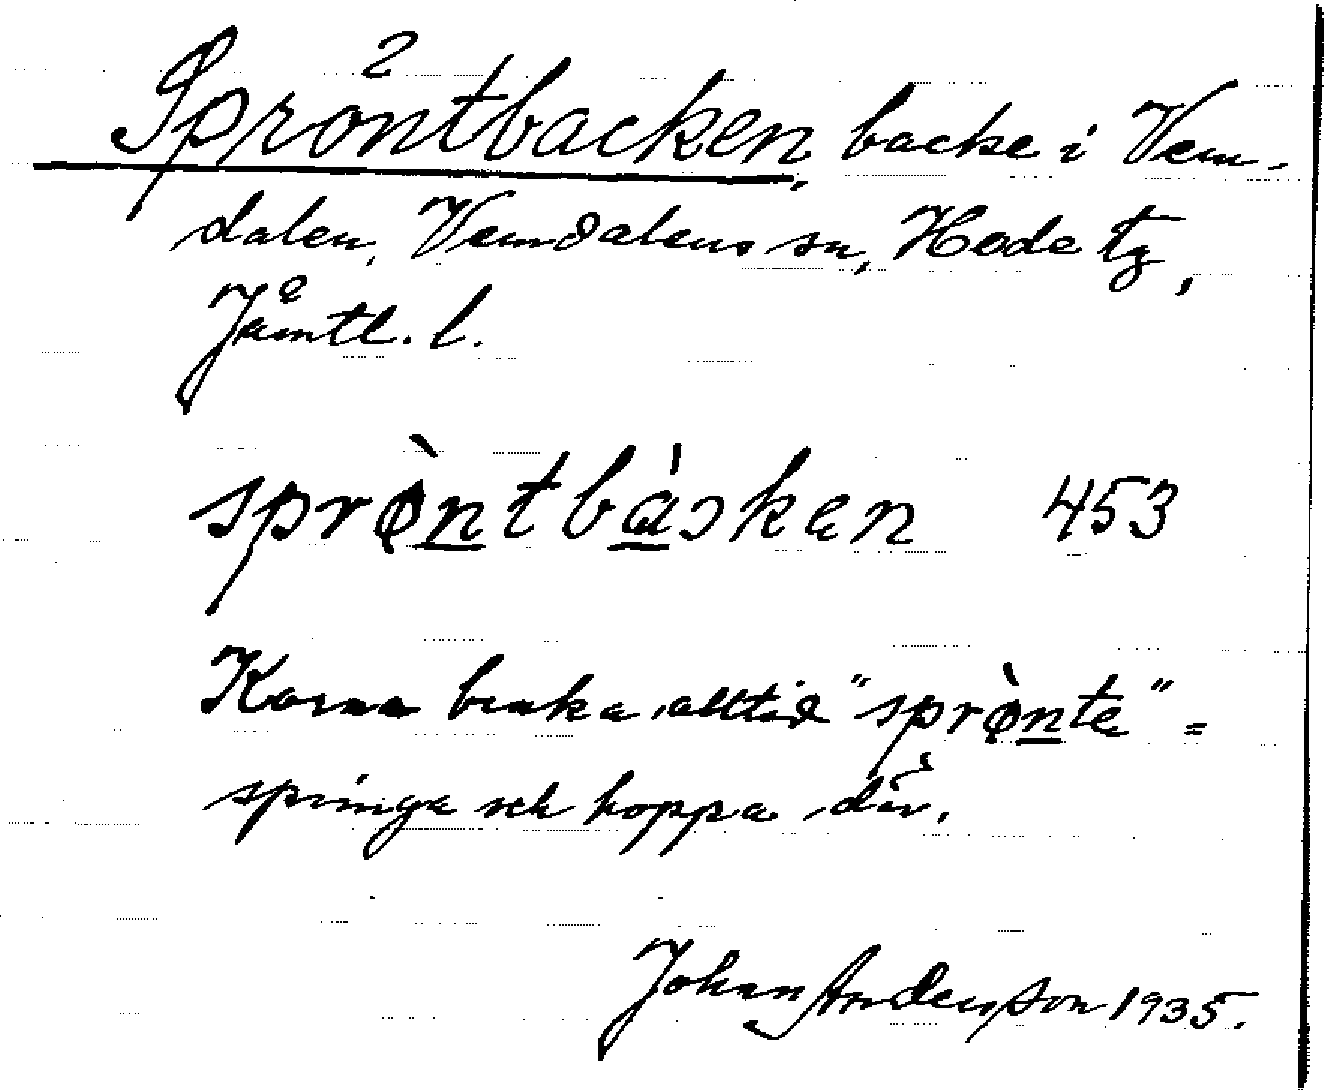 Spröntbacken, backe i Vem-
dalen, Vemdalens sn, Hede tg,
Jämtl. l.
sprø̀ntbàsken 453
Korna bruka alltid "sprø̀nte" =
springa och hoppa där.
Johan Anderson 1935.